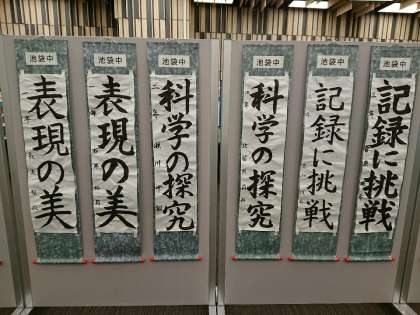 池袋中
記録に挑戦
池袋中
記録に挑戦
池袋中
科学の探究
池袋中
科学の探究
池袋中
表現の美
池袋中
表現の美